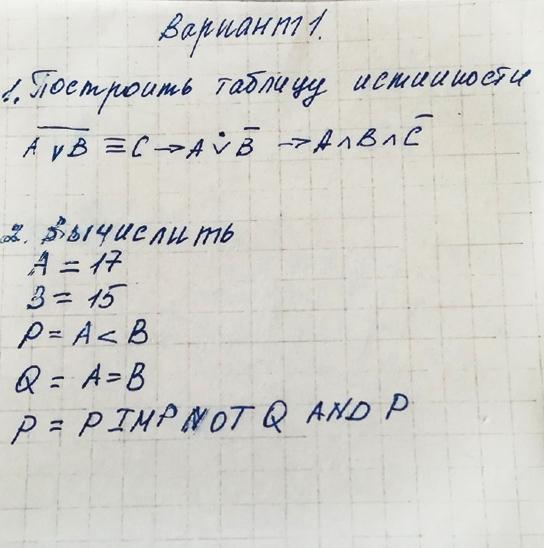 Вариант 1.
1. Построить таблицу истинности
A̅ ̅v̅ ̅B̅ ≡ C → A v̇ B̅ → A ∧ B ∧ C̅
2. Вычислить
A = 17
B = 15
P = A < B
Q = A = B
P = P IMP NOT Q AND P